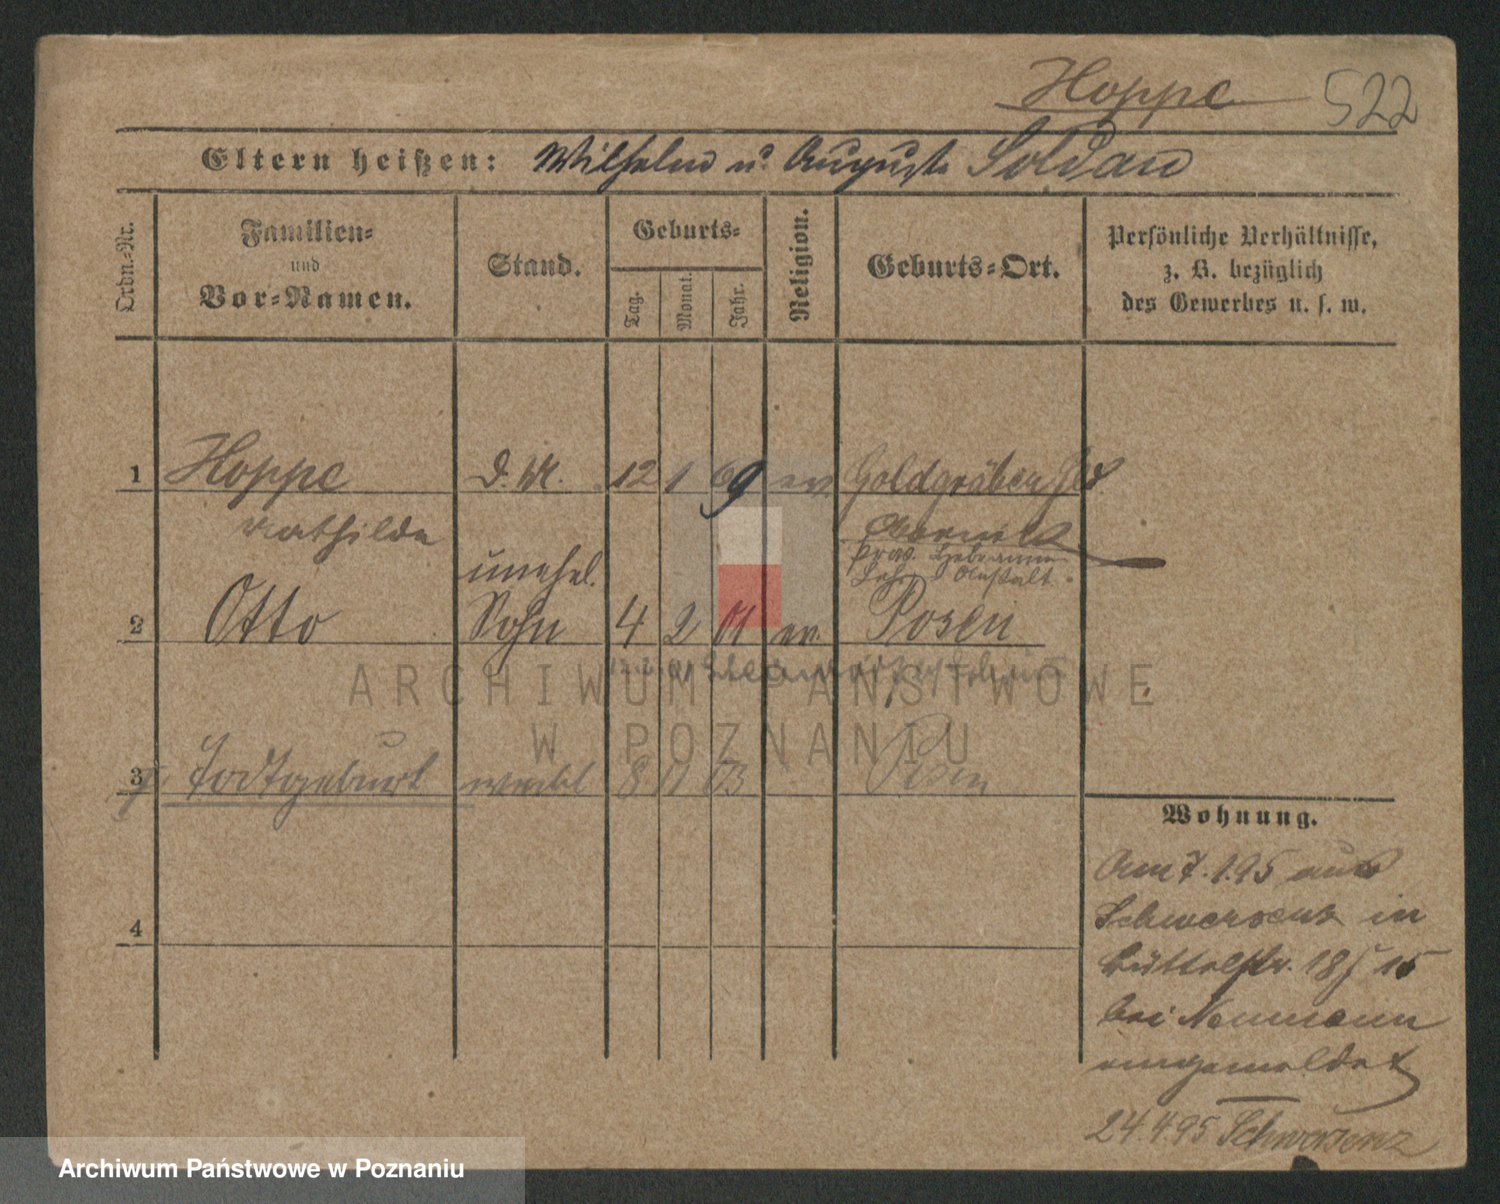 Hoppe 522
Eltern heißen: Wilhelm u. Auguste Soldau
Ordn.-Nr.
Familien-
und
Vor-Namen.
Stand.
Geburts-
Tag.
Monat.
Jahr.
Religion.
Geburts-Ort.
Persönliche Verhältnisse,
z. B. bezüglich
des Gewerbes u. s. w.
1 Hoppe d. M. 12 1 69 ev Goldgräben
Mathilde Obornik
unehel. Prov. Hebammen
Lehr Anstalt
2 Otto Sohn 4 2 01 ev. Posen
3 Todtgeburt weibl 8 11 03 Posen
4
Wohnung.
Am 7.1.95 aus
Schwersenz in
Büttelstr. 18 15
bei Neumann
angemeldet
24.4.95 Schwersenz
ARCHIWUM PAŃSTWOWE
W POZNANIU
Archiwum Państwowe w Poznaniu